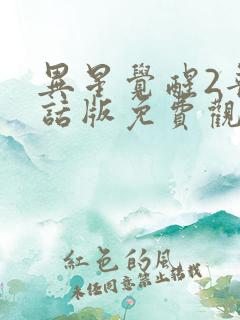 異星覺醒2
話版免費觀
紅色的風
未经同意禁止转载